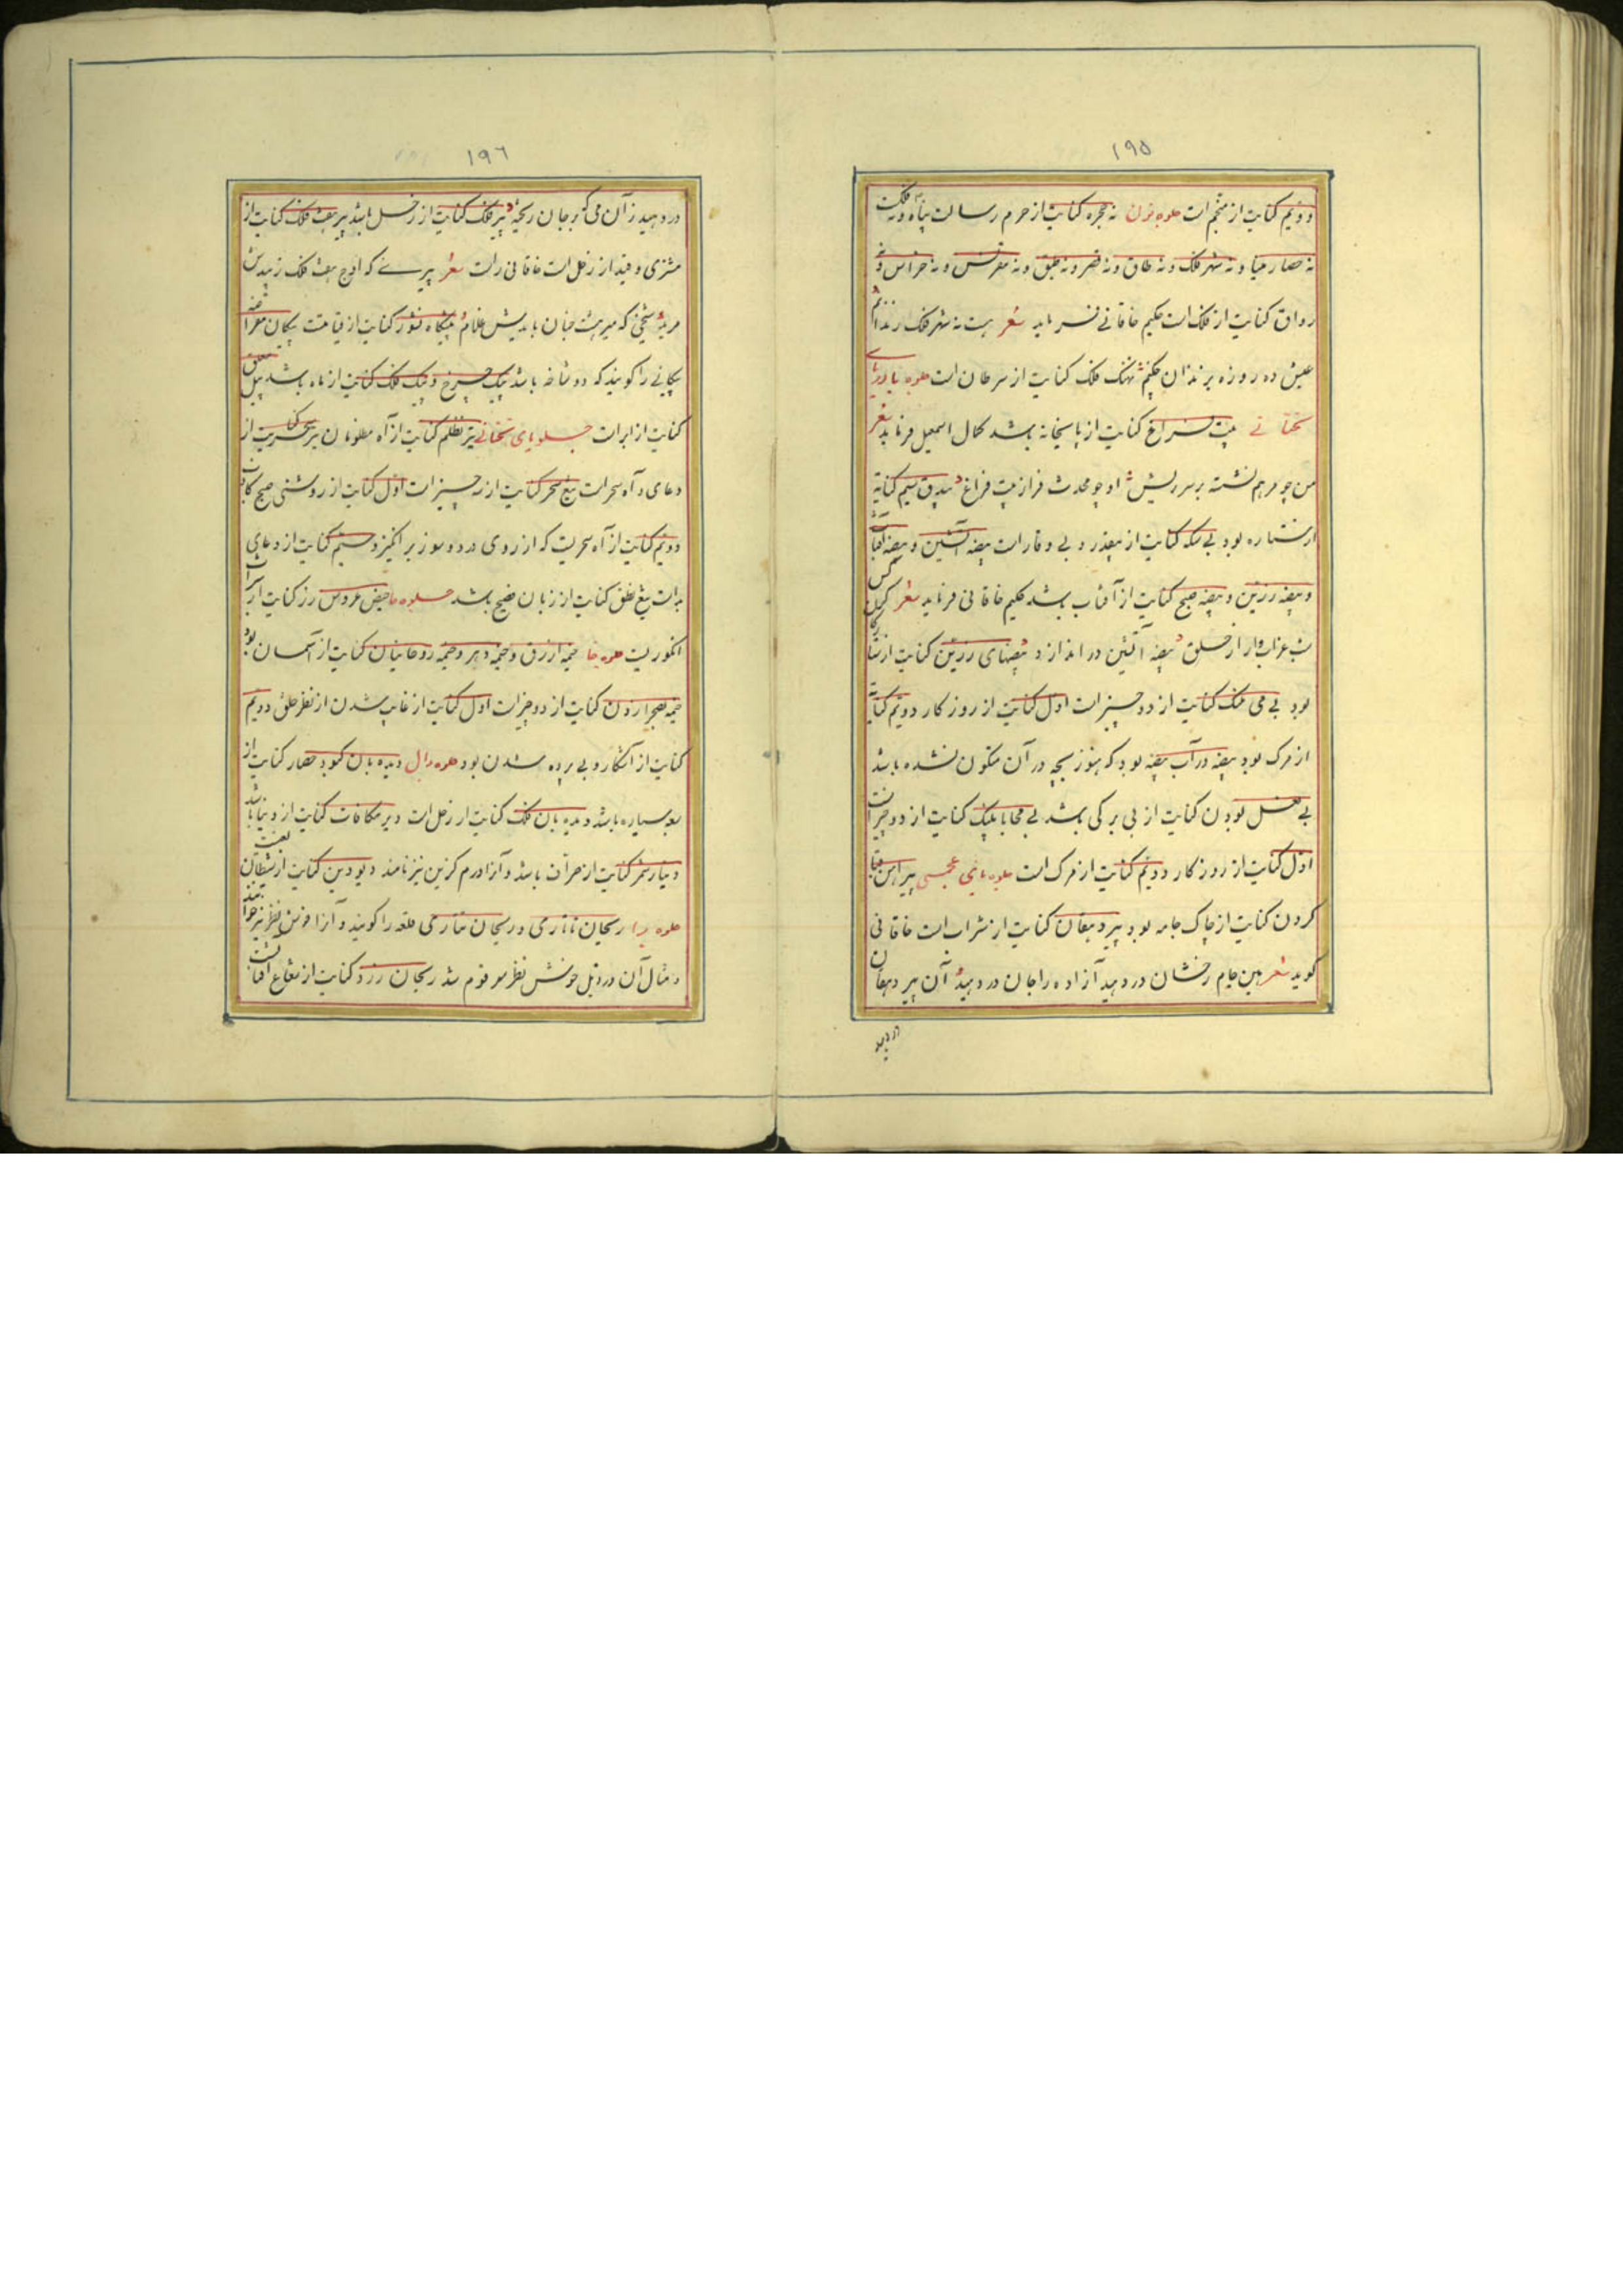 ۱۹۵
دویم کنایت از منجم است جلوه نون نه حجره کنایت از حرم رسالت پناه و نه فلک
نه حصار مینا و نه شهر فلک و نه طاق و نه قصر و نه طبق و نه مقرنس و نه خراس و نه
رواق کنایت از فلک است حکیم خاقانی فرماید شعر هست نه شهر فلک زندانم
عیش ده روزه بزندان چکنم نهنگ فلک کنایت از سرطان است جلوه یا
تحتانی بیت فراغ کنایت از پاسیخانه باشد کمال اسمعیل فرماید شعر
من چو مرهم نشسته بر سر ریش او چو محدث فراز بیت فراغ بیدق سیم کنایة
از ستاره بود بی سکه کنایت از بیقدر و بی وقار است بیضه آتشین و بیضه آفتاب
و بیضه زرین و بیضه صبح کنایت از آفتاب باشد حکیم خاقانی فرماید شعر
شب غراب وار از حلق بیضه آتشین در اندازد بیضهای زرین کنایت از ستارگان
بود بی می خنک کنایت از دو چیز است اول کنایت از روزکار دویم کنایة
از مرک بود بیضه در آب بیضه بود که هنوز بچه در آن متکون نشده باشد
بی بودن کنایت از بی برکی باشد بی محابا پلنک کنایت از دو چیز است
اول کنایت از روزکار دویم کنایت از مرک است جلوه بای عجمی پیراهن قبا
کردن کنایت از چاک جامه بود پیر دهقان کنایت از شراب است خاقانی
کوید شعر هین جام رخشان در دهید آزاده را جان در دهید آن پیر دهقان
در دهید
۱۹۶
در دهید زآن می که بر جان ریخته پیر فلک کنایت از زحل باشد پیر هفت فلک کنایت از
مشتری و قید از زحل است خاقانی راست شعر پیری که اوج هفت فلک زیبدش
مرید شیخی که میر هشت جنان بایدش غلام پیشکاه نشور کنایت از قیامت پیکان مقراضه
پیکانی را کویند که دو شاخه باشد پیک چرخ و پیک فلک کنایت از ماه باشد پیل معلق
کنایت از ابر است جلوهای تحتانی تیر تظلم کنایت از آه مظلومان تیر سحری کنایت از
دعای و آه سحر است تیغ سحر کنایت از سه چیز است اول کنایت از روشنی صبح کاذب
دویم کنایت از آه سحریست که از روی درد و سوز برانکیزد سیم کنایت از دعای
بد است تیغ نطق کنایت از زبان فصیح باشد جلوه حا حیض عروس رز کنایت از شراب
انکوریست جلوه خا خیمه ازرق و خیمه دهر و خیمه روحانیان کنایت از آسمان بود
خیمه بصحرا زدن کنایت از دو چیز است اول کنایت از غایب شدن از نظر خلق دویم
کنایت از آشکار و بی پرده شدن بود جلوه دال دیده بان کبود حصار کنایت از
سبع سیاره باشد دیده بان فلک کنایت از زحل است دیر مکافات کنایت از دنیا باشد
دینار شمر کنایت از صراف باشد و آنرا درم کزین نیز نامند دیو دین کنایت از شیطان
جلوه را ریحان تاتاری و ریحان تتاری ملقه را کویند و آنرا خوش نظر نیز خوانند
و مثال آن در ذیل خوش نظر مرقوم شد ریحان زرد کنایت از شعاع آفتابست